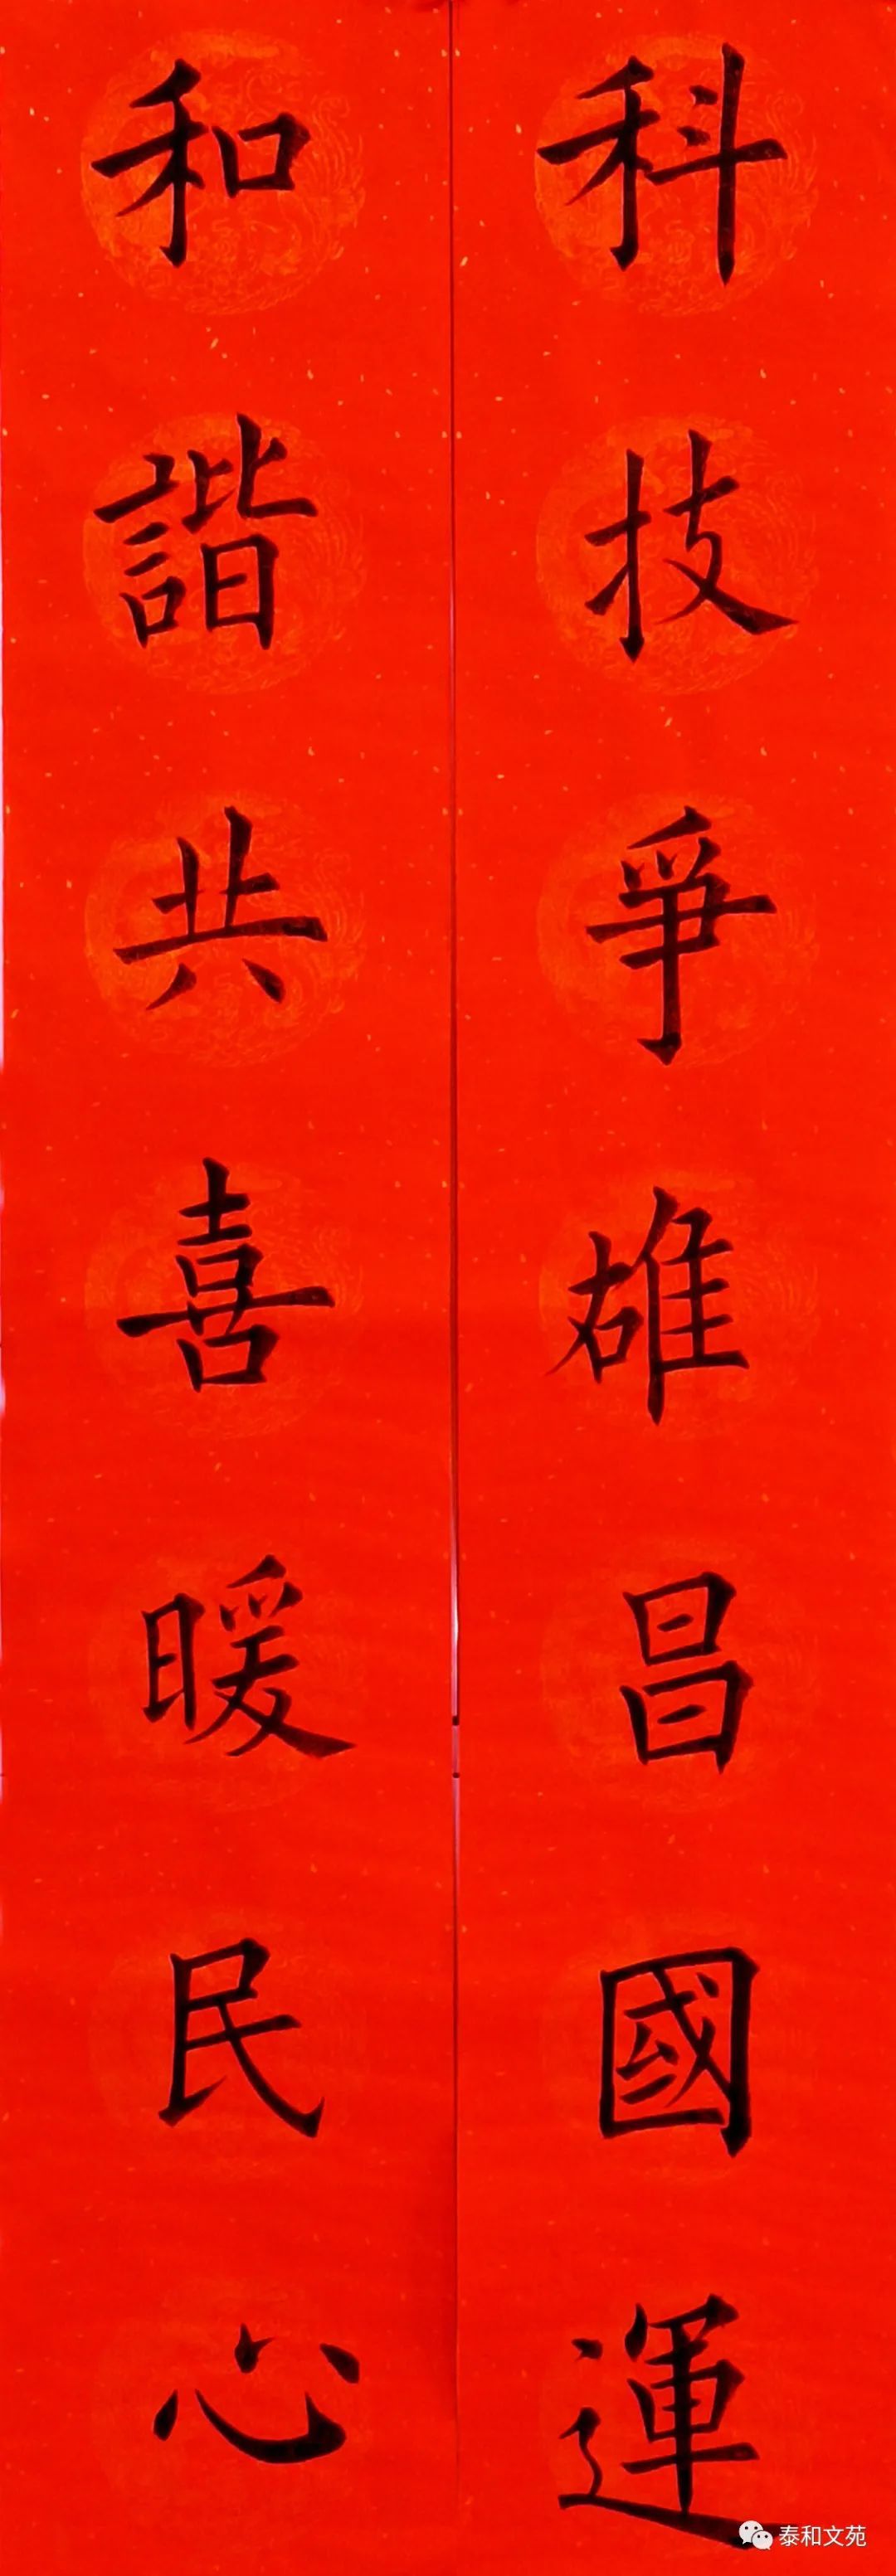 科技爭雄昌國運
和諧共喜暖民心
泰和文苑